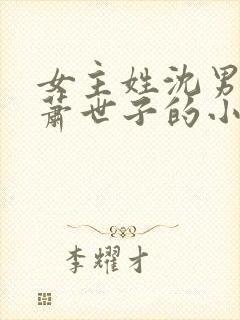 女主姓沈男
萧世子的小
李耀才